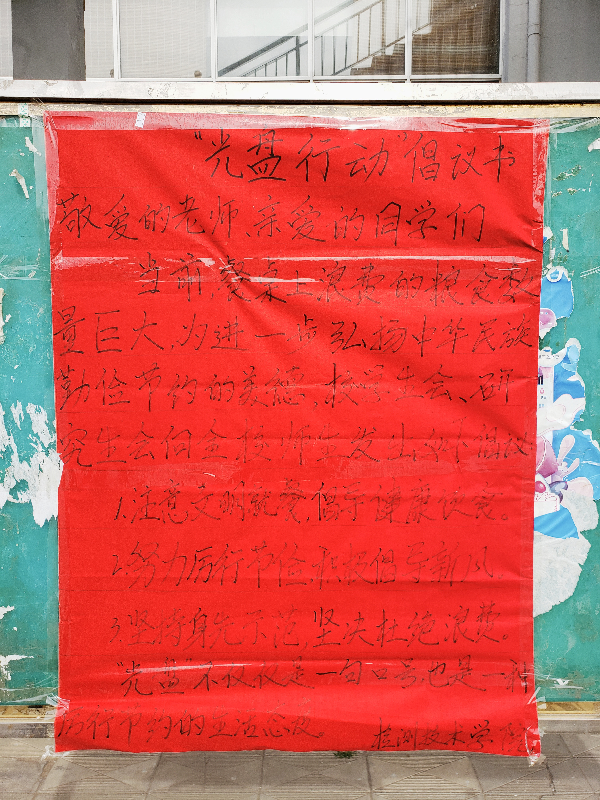 "光盘行动"倡议书
敬爱的老师、亲爱的同学们
当前,餐桌上浪费的粮食数
量巨大,为进一步弘扬中华民族
勤俭节约的美德,校学生会、研
究生会向全校师生发出以下倡议
1.注意文明就餐倡导健康饮食。
2.努力厉行节俭积极倡导新风
3.坚持身先示范,坚决杜绝浪费。
"光盘"不仅仅是一句口号也是一种
厉行节约的生活态度。 检测技术学院